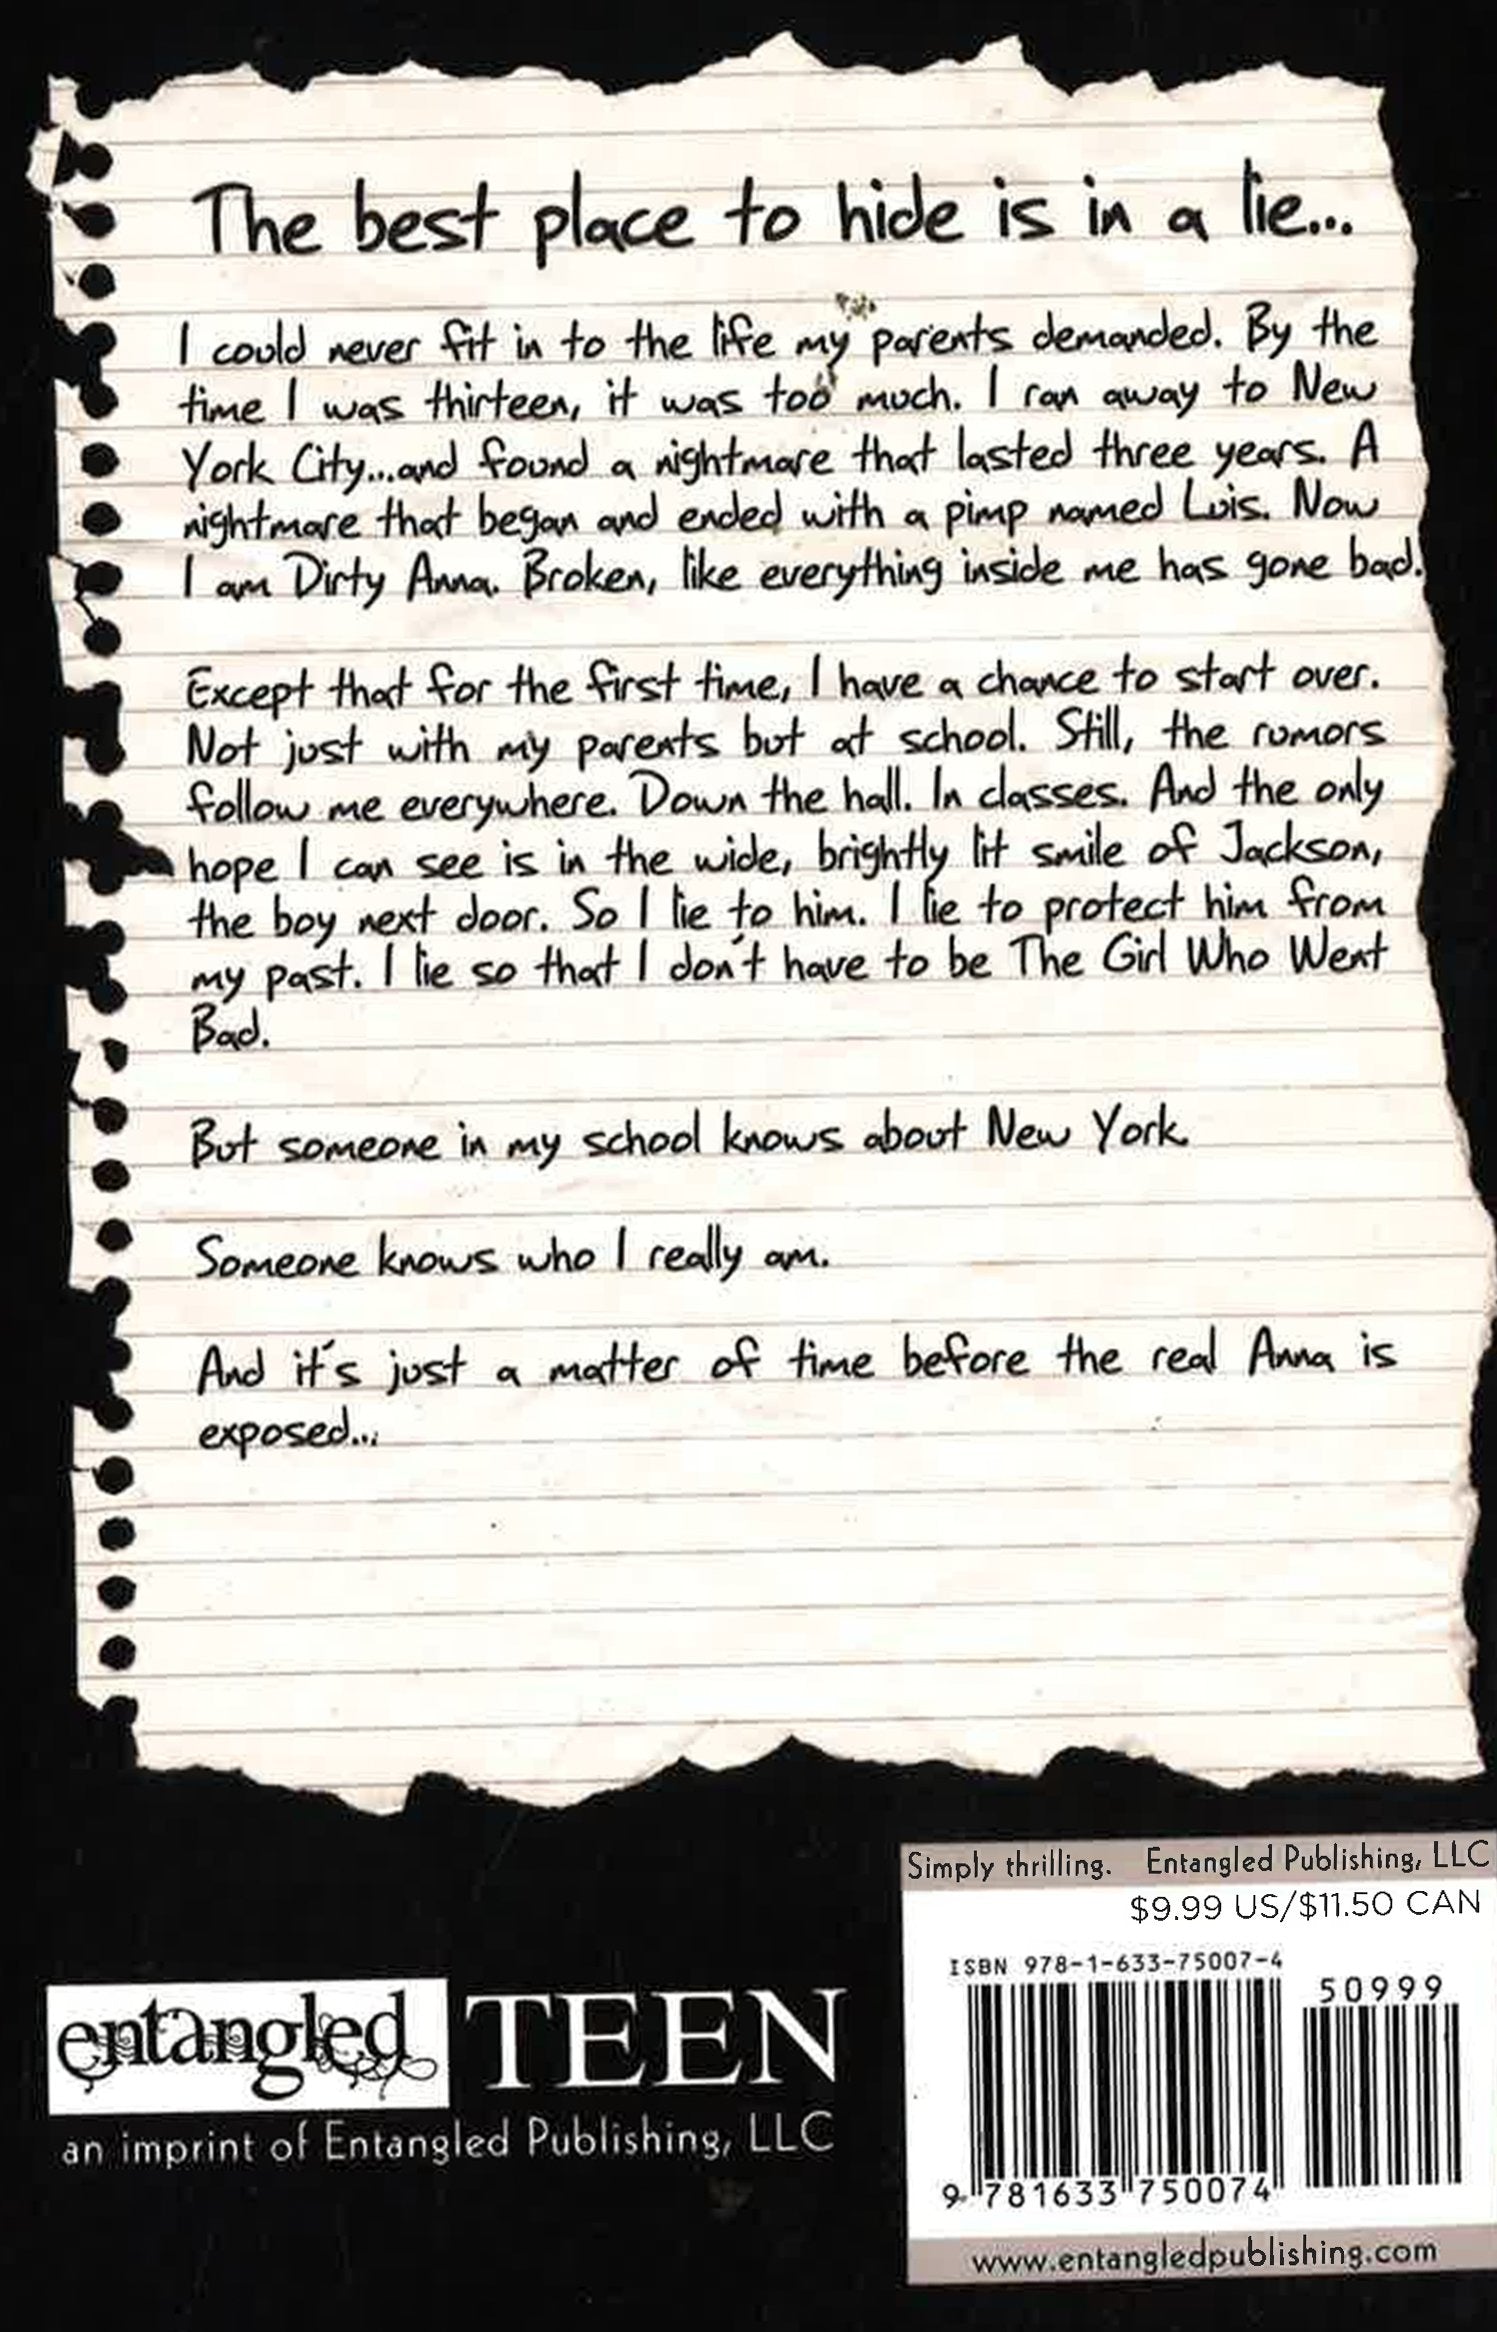 The best place to hide is in a lie...
I could never fit in to the life my parents demanded. By the
time I was thirteen, it was too much. I ran away to New
York City...and found a nightmare that lasted three years. A
nightmare that began and ended with a pimp named Luis. Now
I am Dirty Anna. Broken, like everything inside me has gone bad.
Except that for the first time, I have a chance to start over.
Not just with my parents but at school. Still, the rumors
follow me everywhere. Down the hall. In classes. And the only
hope I can see is in the wide, brightly lit smile of Jackson,
the boy next door. So I lie to him. I lie to protect him from
my past. I lie so that I don't have to be The Girl Who Went
Bad.
But someone in my school knows about New York.
Someone knows who I really am.
And it's just a matter of time before the real Anna is
exposed...
entangled TEEN
an imprint of Entangled Publishing, LLC
Simply thrilling. Entangled Publishing, LLC
$9.99 US/$11.50 CAN
ISBN 978-1-633-75007-4
50999
9 781633 750074
www.entangledpublishing.com